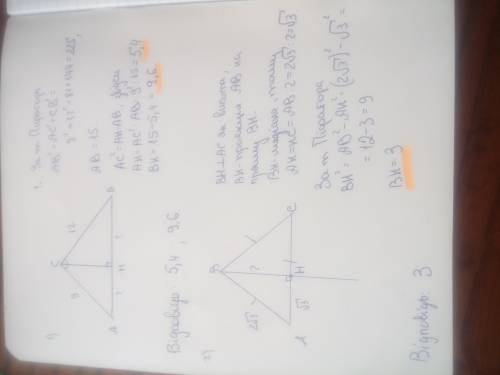 9)
C
9
12
A
?
H
?
B
1. За т. Піфагора
AB² = AC² + CB² =
9² + 12² = 81 + 144 = 225,
AB = 15
AC² = AH·AB,
AH = AC² : AB = 9² : 15 = 5,4
BH = 15 - 5,4 = 9,6
Відповідь: 5,4 , 9,6
B
2√3
?
A
√3
H
C
BH ⊥ AC як висота,
BH проекція AB на
пряму BH.
BH - медіана, тому
AH = HC = AB : 2 = 2√3 : 2 = √3
За т. Піфагора
BH² = AB² - AH² = (2√3)² - √3² =
= 12 - 3 = 9
BH = 3
Відповідь: 3